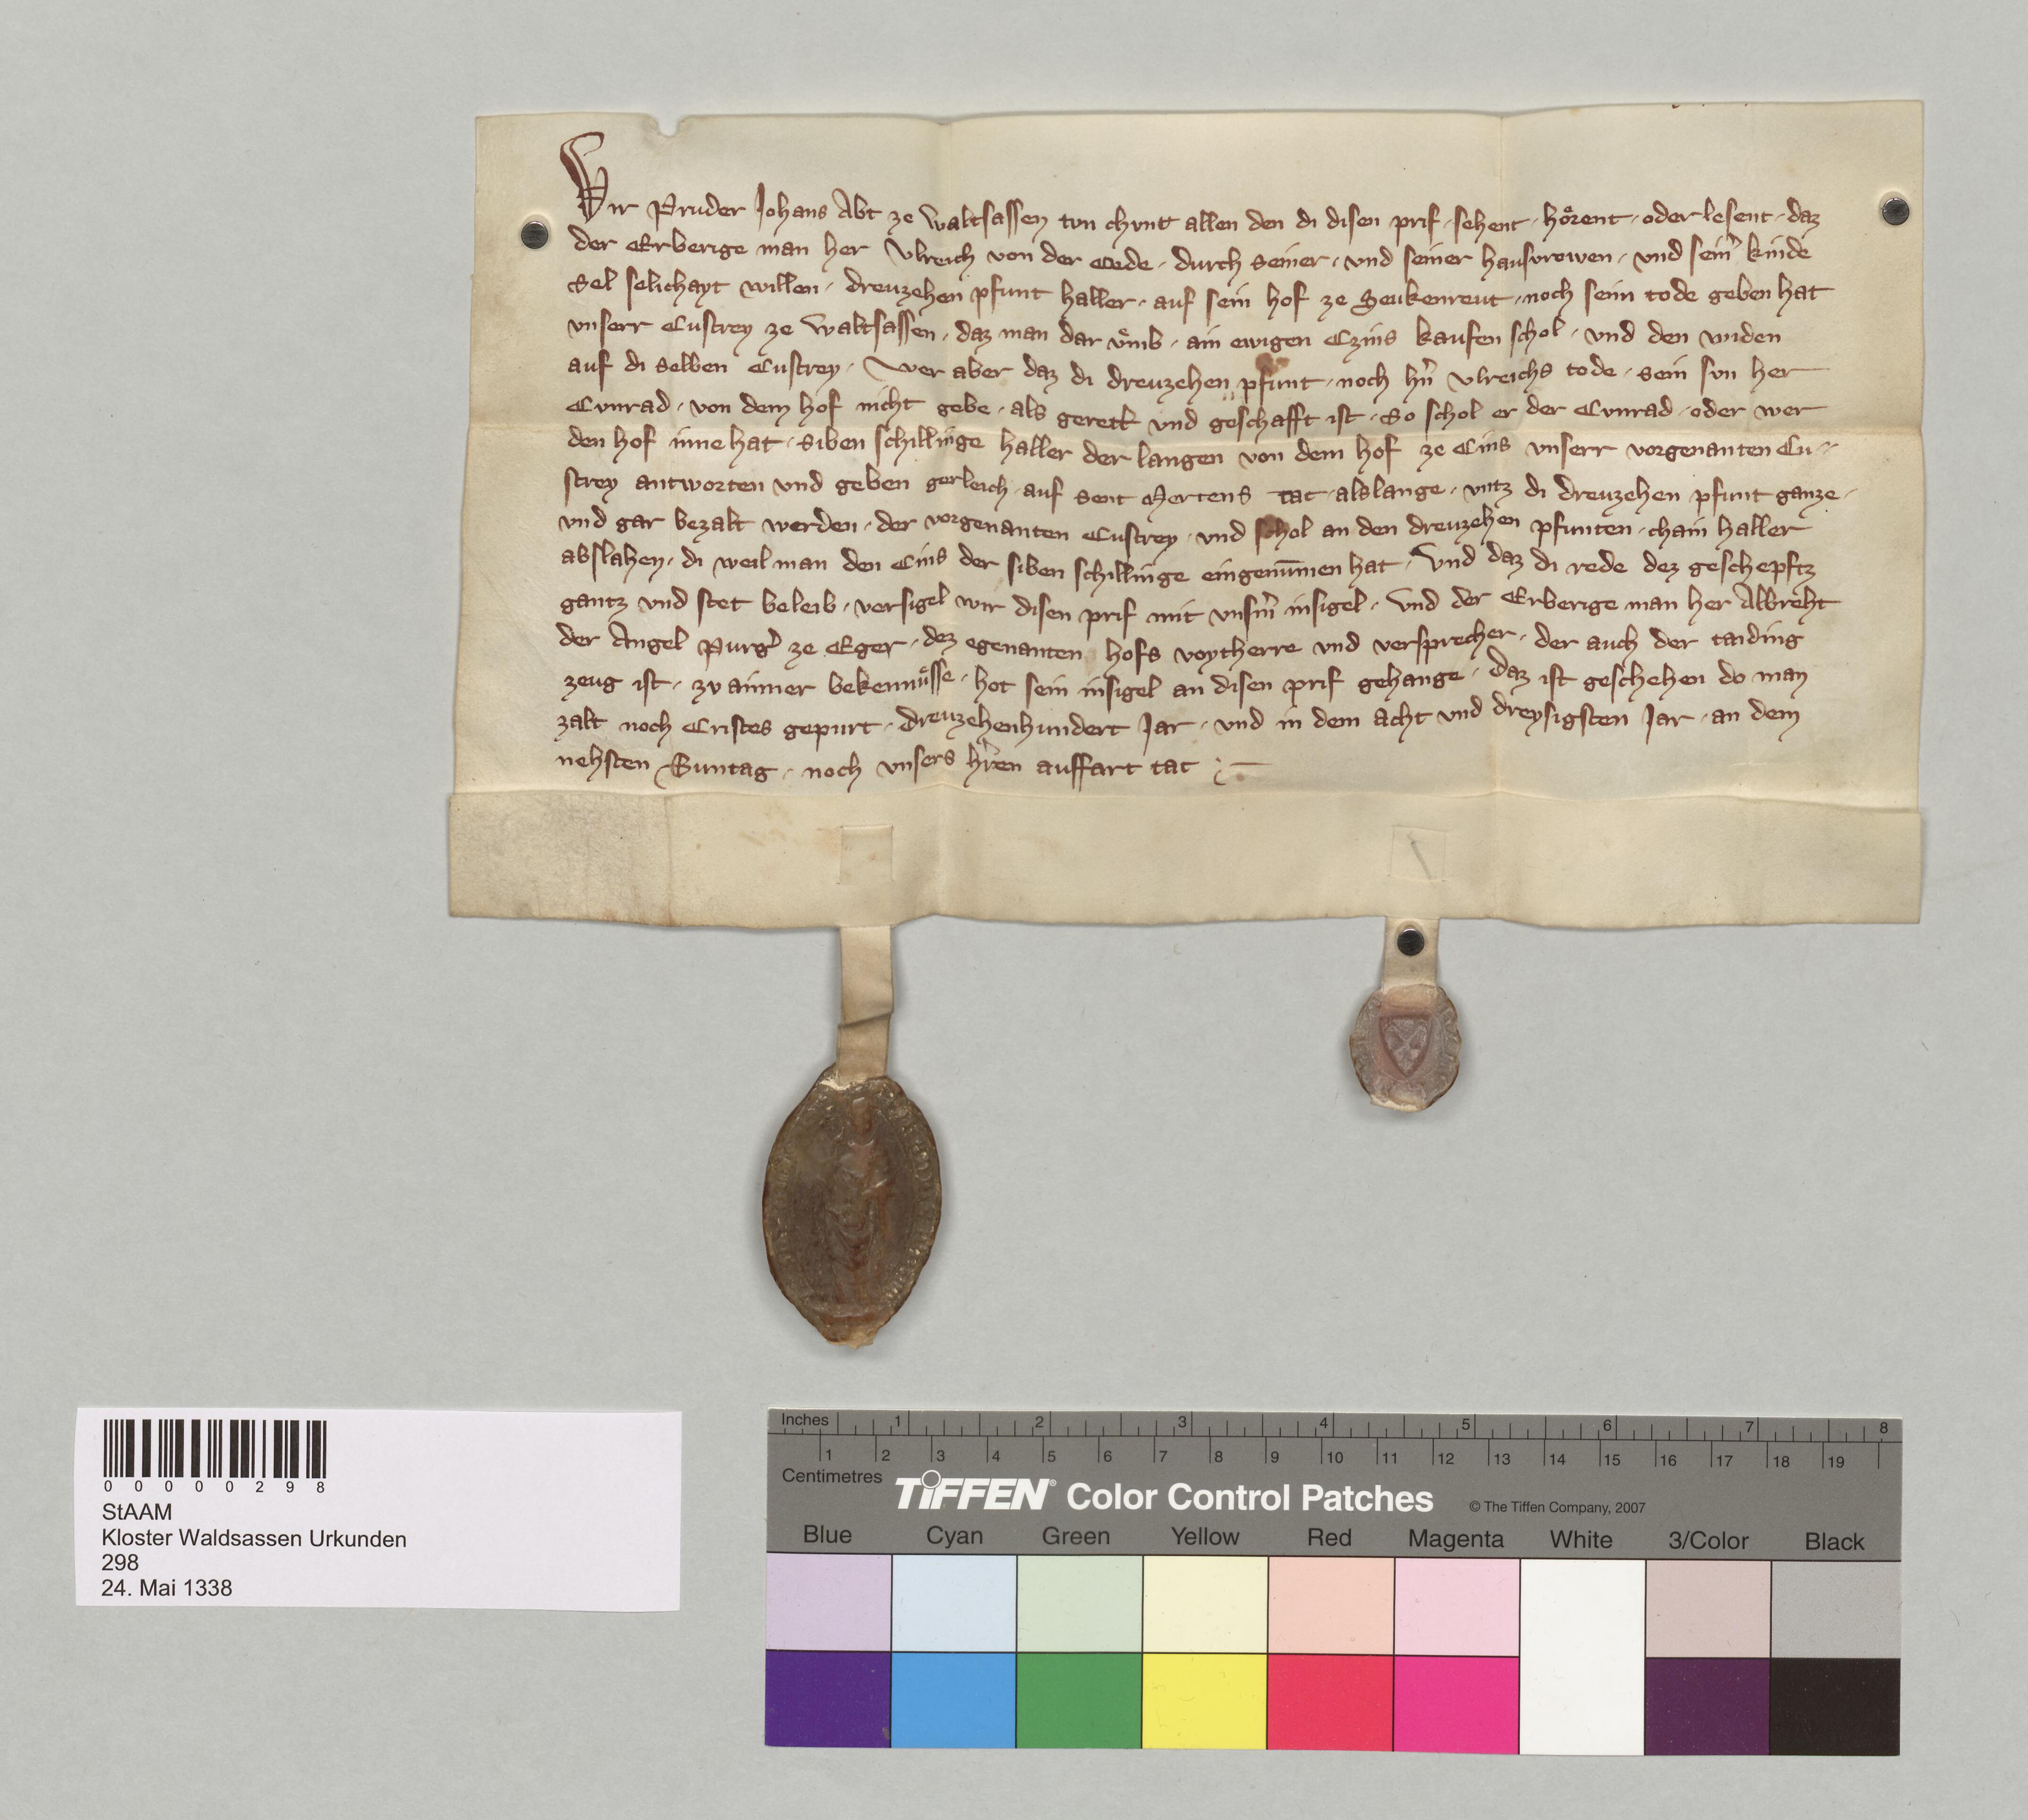 Wir Pruder Johans Abt ze Waltsassen tvn chvnt allen den di disen prif · sehent · hoͤrent · oder lesent · daz
der Erberige man her Vlreich von der Oede · durch seiner · vnd seiner hausvrowen · vnd seinˀ kinde
Sel selichayt willen · dreuzehen pfunt haller · auf sein hof ze Seukenreut · noch seim tode geben hat
vnserr Custrey ze Waltsassen · daz man dar vͤmb · ain ewigen Czins kaufen schol · vnd den widen
auf di selben Custrey · Wer aber daz di dreuzehen pfunt · noch hˀn Vlreichs tode · sein svn her
Cvnrad · von dem hof nicht gebe · als gerett vnd geschafft ist · So schol er der Cvnrad · oder wer
den hof inne hat · Siben schillinge haller der langen von dem hof ze Cins vnserr vorgenanten Cu⸗
strey antworten vnd geben gerleich · auf sent Mertens tac · alslange · vntz di dreuzehen pfunt ganze ·
vnd gar bezalt werden · der vorgenanten Custrey · vnd schol an den dreuzehen pfunten · chain haller
abslahen · di weil man den Cins der siben schillinge eingenūmen hat · Vnd daz di rede dez geschepftz
gantz vnd stet beleib · versigel wir disen prif mit vnsmˀ insigel · Vnd der Erberige man her Albreht
der Angel Purgˀ ze Eger · dez egenanten hofs voytherre vnd versprecher · der auch der taiding
zeug ist · zv ainner bekennuͤsse · hot sein insigel an disen prif gehange · Daz ist geschehen do man
zalt noch Cristes gepurt · dreuzehenhundert Jar · vnd in dem acht vnd dreysigsten Jar · an dem
nehsten Suntag · noch vnsers hˀren auffart tac
0 0 0 0 0 2 9 8
StAAM
Kloster Waldsassen Urkunden
298
24. Mai 1338
Inches 1 2 3 4 5 6 7 8
1 2 3 4 5 6 7 8 9 10 11 12 13 14 15 16 17 18 19
Centimetres
TIFFEN® Color Control Patches © The Tiffen Company, 2007
Blue Cyan Green Yellow Red Magenta White 3/Color Black